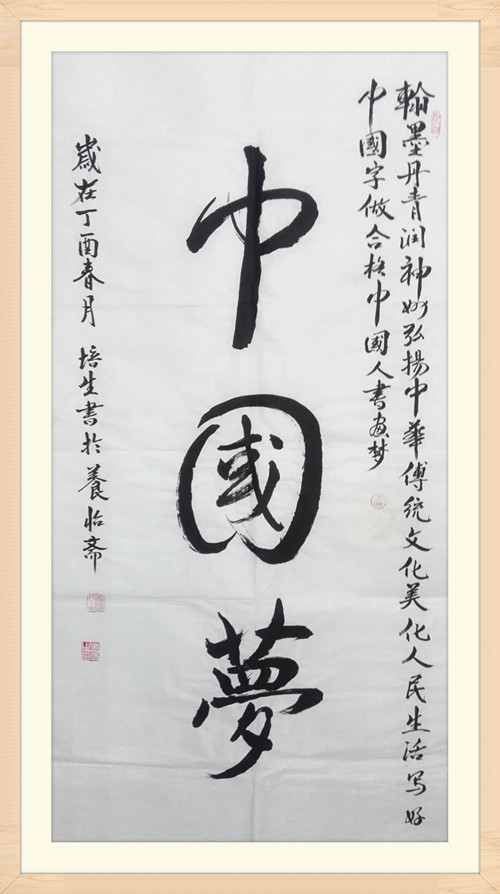 翰墨丹青润神州弘揚中華傳统文化美化人民生活写好
中國字做合格中國人書畫梦
中國夢
歲在丁酉春月 培生書於養怡斋